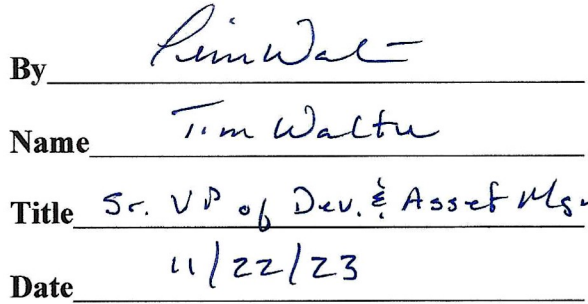 By
Name Tim Walter
Title Sr. VP of Dev. & Asset Mg
Date 11/22/23